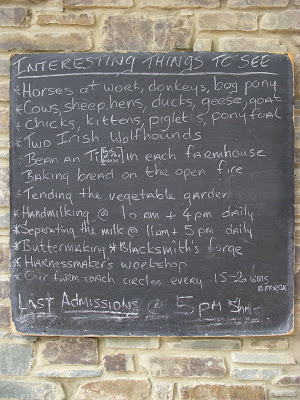 INTERESTING THINGS TO SEE
* Horses at work, donkeys, bog pony
* Cows, sheep, hens, ducks, geese, goat
* Chicks, kittens, piglets, pony foal
* Two Irish Wolfhounds
* Bean an Tí in each farmhouse
Baking bread on the open fire
* Tending the vegetable garden
* Handmilking @ 10 am + 4 pm daily
* Seperating the milk @ 11am + 5 pm daily
* Buttermaking * Blacksmith's forge
* Harnessmaker's workshop
* Our farm coach circles every 15-20 mins
APPROX
LAST ADMISSIONS @ 5 pm